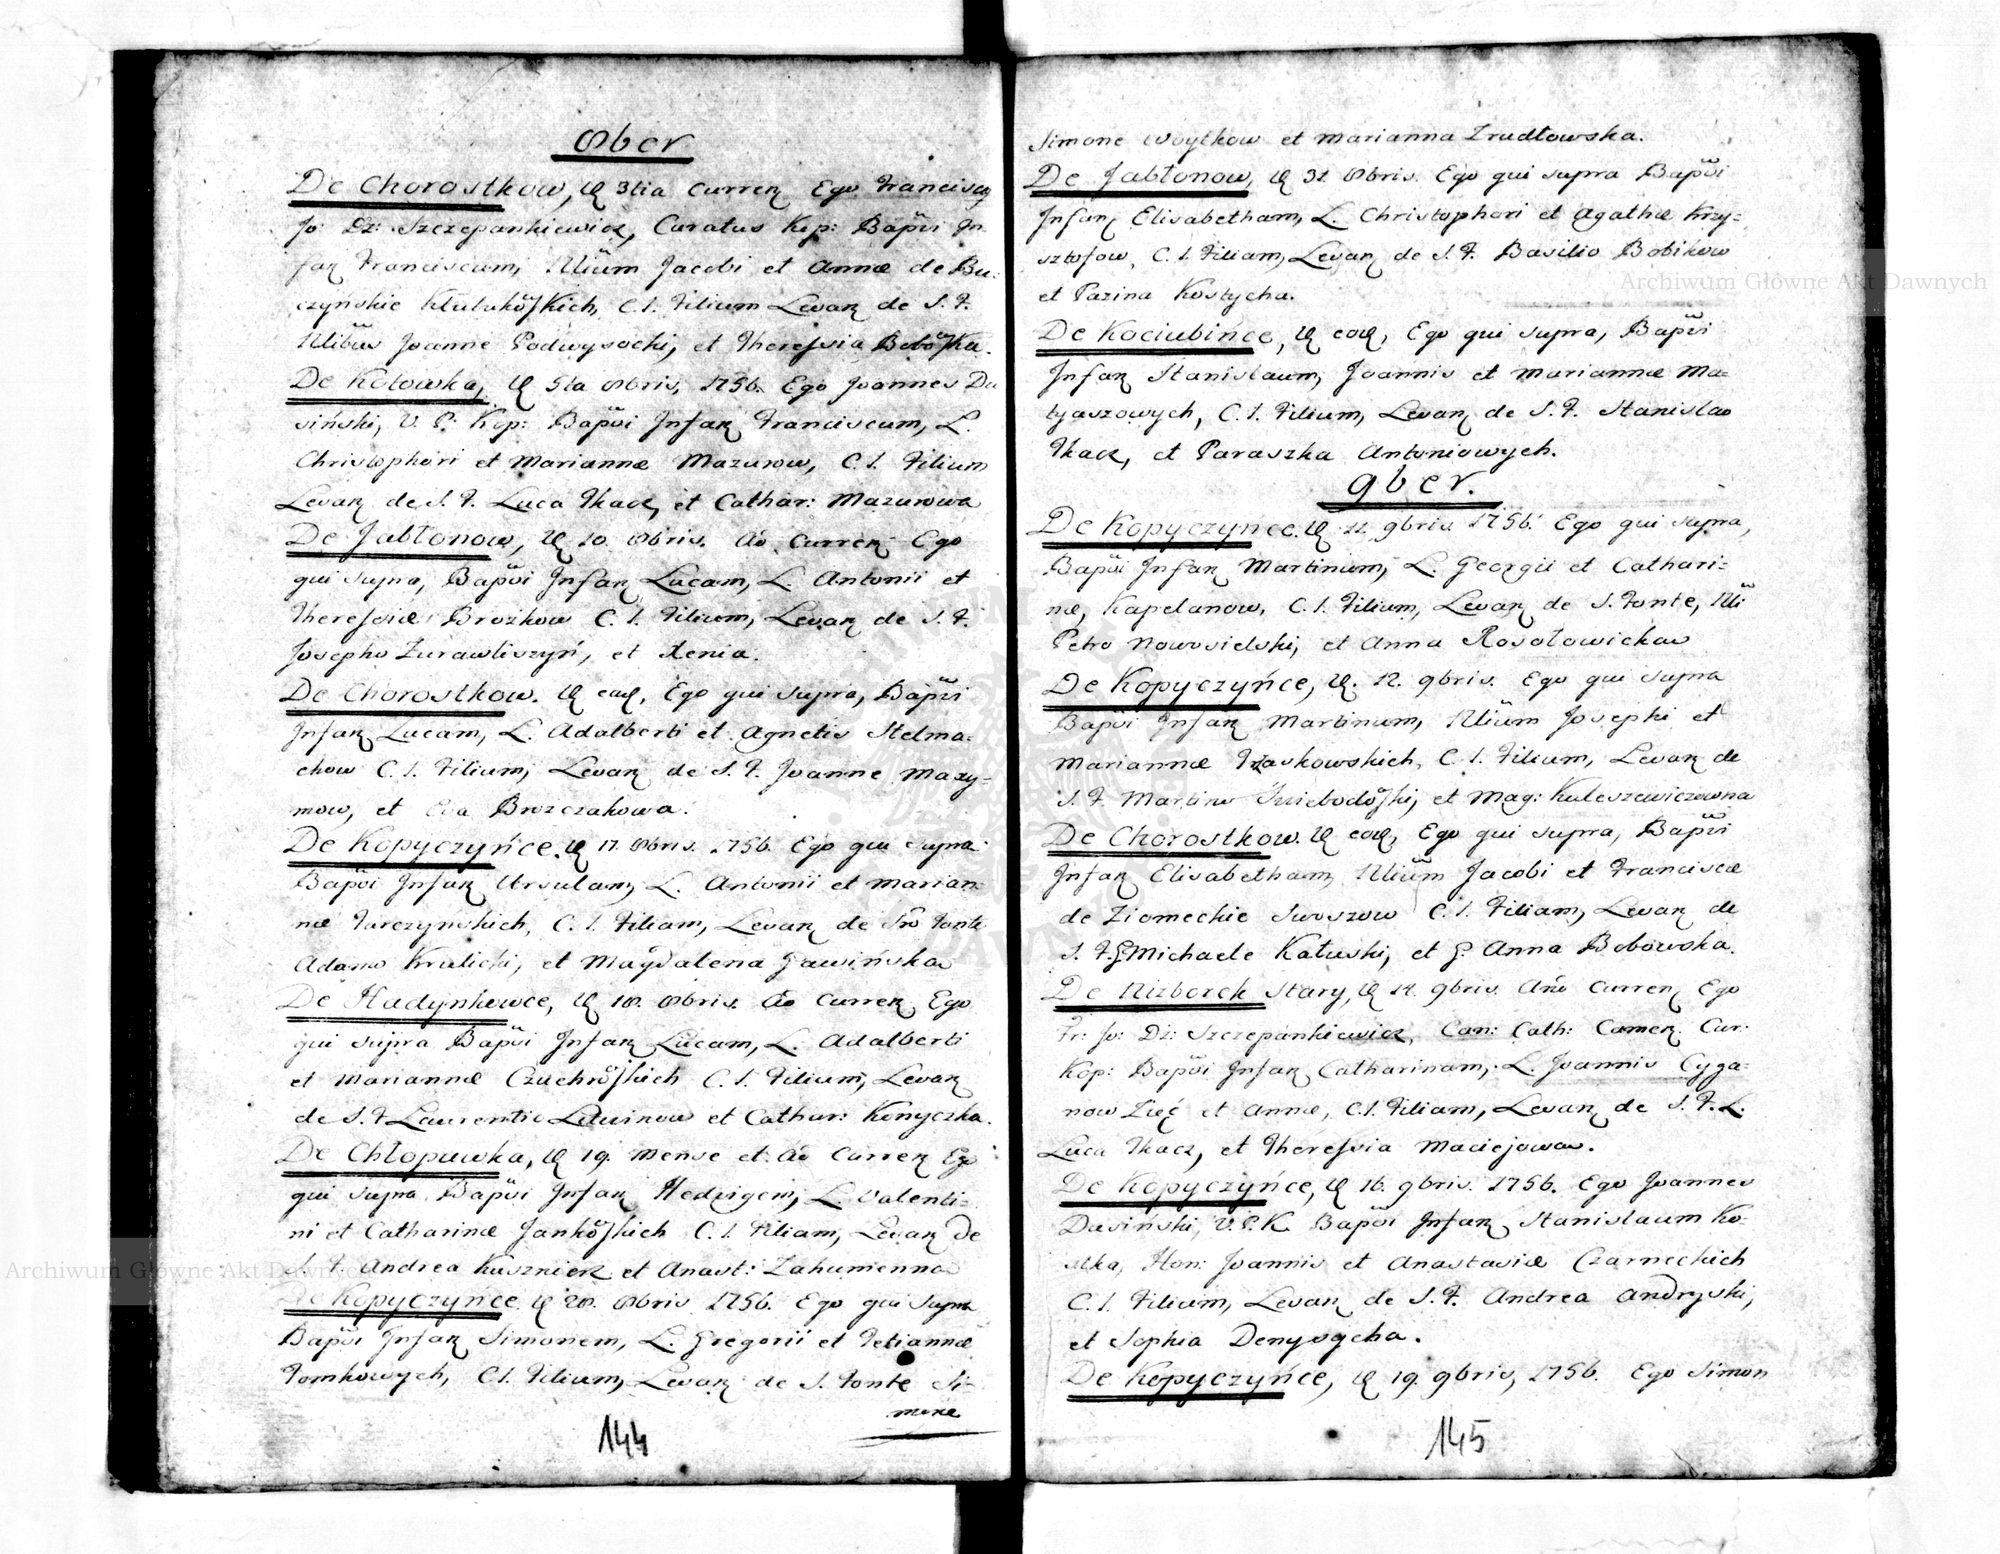 8ber
De Chorostkow, D 3tia Curren Ego Francisc
Jo: Dz: Szczepankiewicz, Curatus Kop: Bapvi In
fan Franciscum, Mllium Jacobi et Annæ de Bu-
czyńskie Klubukosskich, C. l. Filium Levan de S. F.
Mlibus Joanne Podwysocki, et Theressia Bobosska.
De Kotowka, D 5ta 8bris, 1756. Ego Joannes Du
siński, V. P. Kop: Bapvi Infan Franciscum, L.
Christophori et Mariannæ Mazurow, C. l. Filium
Levan de S. F. Luca Tkacz, et Cathar: Mazurowa
De Jabłonow, D 10. 8bris. Ao Curren Ego
qui supra, Bapvi Infan Lucam, L. Antonii et
Theressiæ Brozkow C. l. Filium, Levan de S. F.
Josepho Zurawliszyń, et Xenia.
De Chorostkow. D ead, Ego qui supra, Bapvi
Infan Lucam, L. Adalberti et Agnetis Stelma-
chow C. l. Filium, Levan de S. F. Joanne Maxy-
mow, et Eva Brozczakowa.
De Kopyczyńce. D 17. 8bris. 1756. Ego qui supra
Bapvi Infan Ursulam, L. Antonii et Marian-
næ Turczynskich, C. l. Filiam, Levan de Sro Fonte
Adamo Krulicki, et Magdalena Gawińska
De Hadynkowce, D 18. 8bris. Ao Curren Ego
qui supra Bapvi Infan Lucam, L. Adalberti
et Mariannæ Czuchrosskich C. l. Filium, Levan
de S. F. Laurentio Litwinow et Cathar: Konyczka.
De Chłopuwka, D 19. Mense et Ao Curren Ego
qui supra Bapvi Infan Hedvigem, L. Valenti-
ni et Catharinæ Jankosskich C. l. Filiam, Levan De
S. F. Andrea Kusznierz et Anast: Zahumenna
De Kopyczyńce D 28. 8bris 1756. Ego qui supra
Bapvi Infan Simonem, L. Gregorii et Tetiannæ
Tomkowych, C. l. Filium, Levan de S. Fonte Si-
mone
144
Simone Woytkow et Marianna Trudłowska.
De Jabłonow, D 31. 8bris. Ego qui supra Bapvi
Infan Elisabetham, L. Christophori et Agathæ Krzy-
sztofow, C. l. Filiam, Levan de S. F. Basilio Bobikow
et Parina Kostycha.
De Kociubińce, D ead, Ego qui supra, Bapvi
Infan Stanislaum, Joannis et Mariannæ Ma-
tyaszowych, C. l. Filium, Levan de S. F. Stanislao
Tkacz, et Paraszka Antoniowych.
9ber.
De Kopyczyńce. D 11. 9bris 1756. Ego qui supra,
Bapvi Infan Martinum, L. Georgii et Cathari-
næ, Kapelanow, C. l. Filium, Levan de S. Fonte, Mli
Petro Nowosielski, et Anna Rosołowicka
De Kopyczyńce, D. 12. 9bris. Ego qui supra
Bapvi Infan Martinum, Mllium Josephi et
Mariannæ Traskowskich, C. l. Filium, Levan de
S. F. Martino Swiebodosski, et Mag: Kuleszewiczowna
De Chorostkow. D ead, Ego qui supra, Bapvi
Infan Elisabetham, Mllium Jacobi et Franciscæ
de Ziomeckie Suroszow C. l. Filiam, Levan de
S. F. G. Michaele Kałuski, et G. Anna Bobowska.
De Nizborek Stary, D 14. 9bris. Ano Curren Ego
Fr: Jo: Dz: Szczepankiewicz, Can: Cath: Camen. Cur.
Kop: Bapvi Infan Catharinam, L. Joannis Cyga-
now Zięć et Annæ, C. l. Filiam, Levan de S. F. L.
Luca Tkacz, et Theressia Maciejowa.
De Kopyczyńce, D 16. 9bris. 1756. Ego Joannes
Dusiński, V. P. K. Bapvi Infan Stanislaum Ko-
stka, Hon: Joannis et Anastasiæ Czarneckich
C. l. Filium, Levan de S. F. Andrea Andryski,
et Sophia Denysycha.
De Kopyczyńce, D 19. 9bris, 1756. Ego Simon
145
Archiwum Główne Akt Dawnych
Archiwum Główne Akt Dawnych